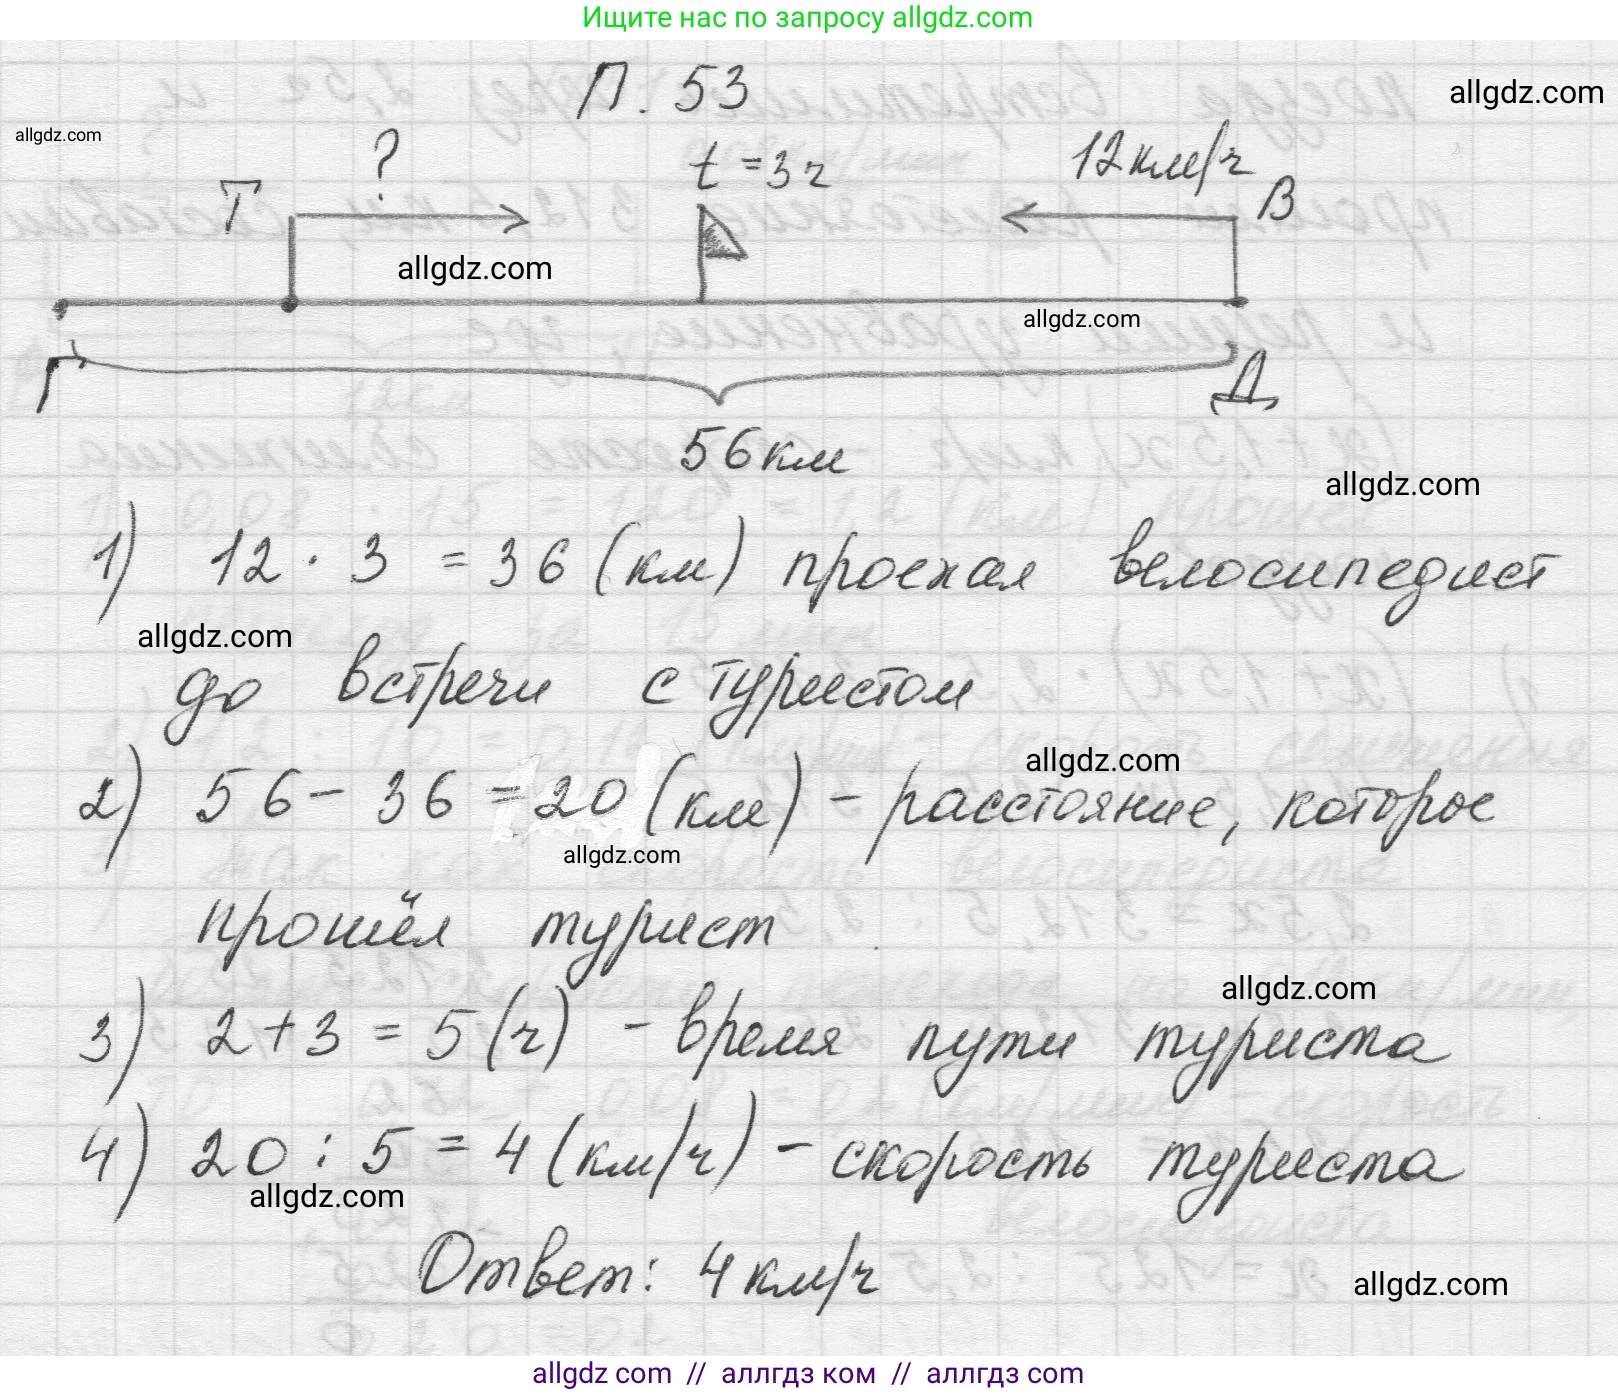 Ищите нас по запросу allgdz.com
П. 53
allgdz.com
allgdz.com
Т ? t = 3ч 12км/ч В
allgdz.com
allgdz.com
Г Д
56км
allgdz.com
1) 12 · 3 = 36 (км) проехал велосипедист
allgdz.com
до встречи с туристом
allgdz.com
2) 56 - 36 = 20 (км) - расстояние, которое
allgdz.com
прошёл турист
allgdz.com
3) 2 + 3 = 5 (ч) - время пути туриста
4) 20 : 5 = 4 (км/ч) - скорость туриста
allgdz.com
Ответ: 4 км/ч
allgdz.com
allgdz com // аллгдз ком // аллгдз com